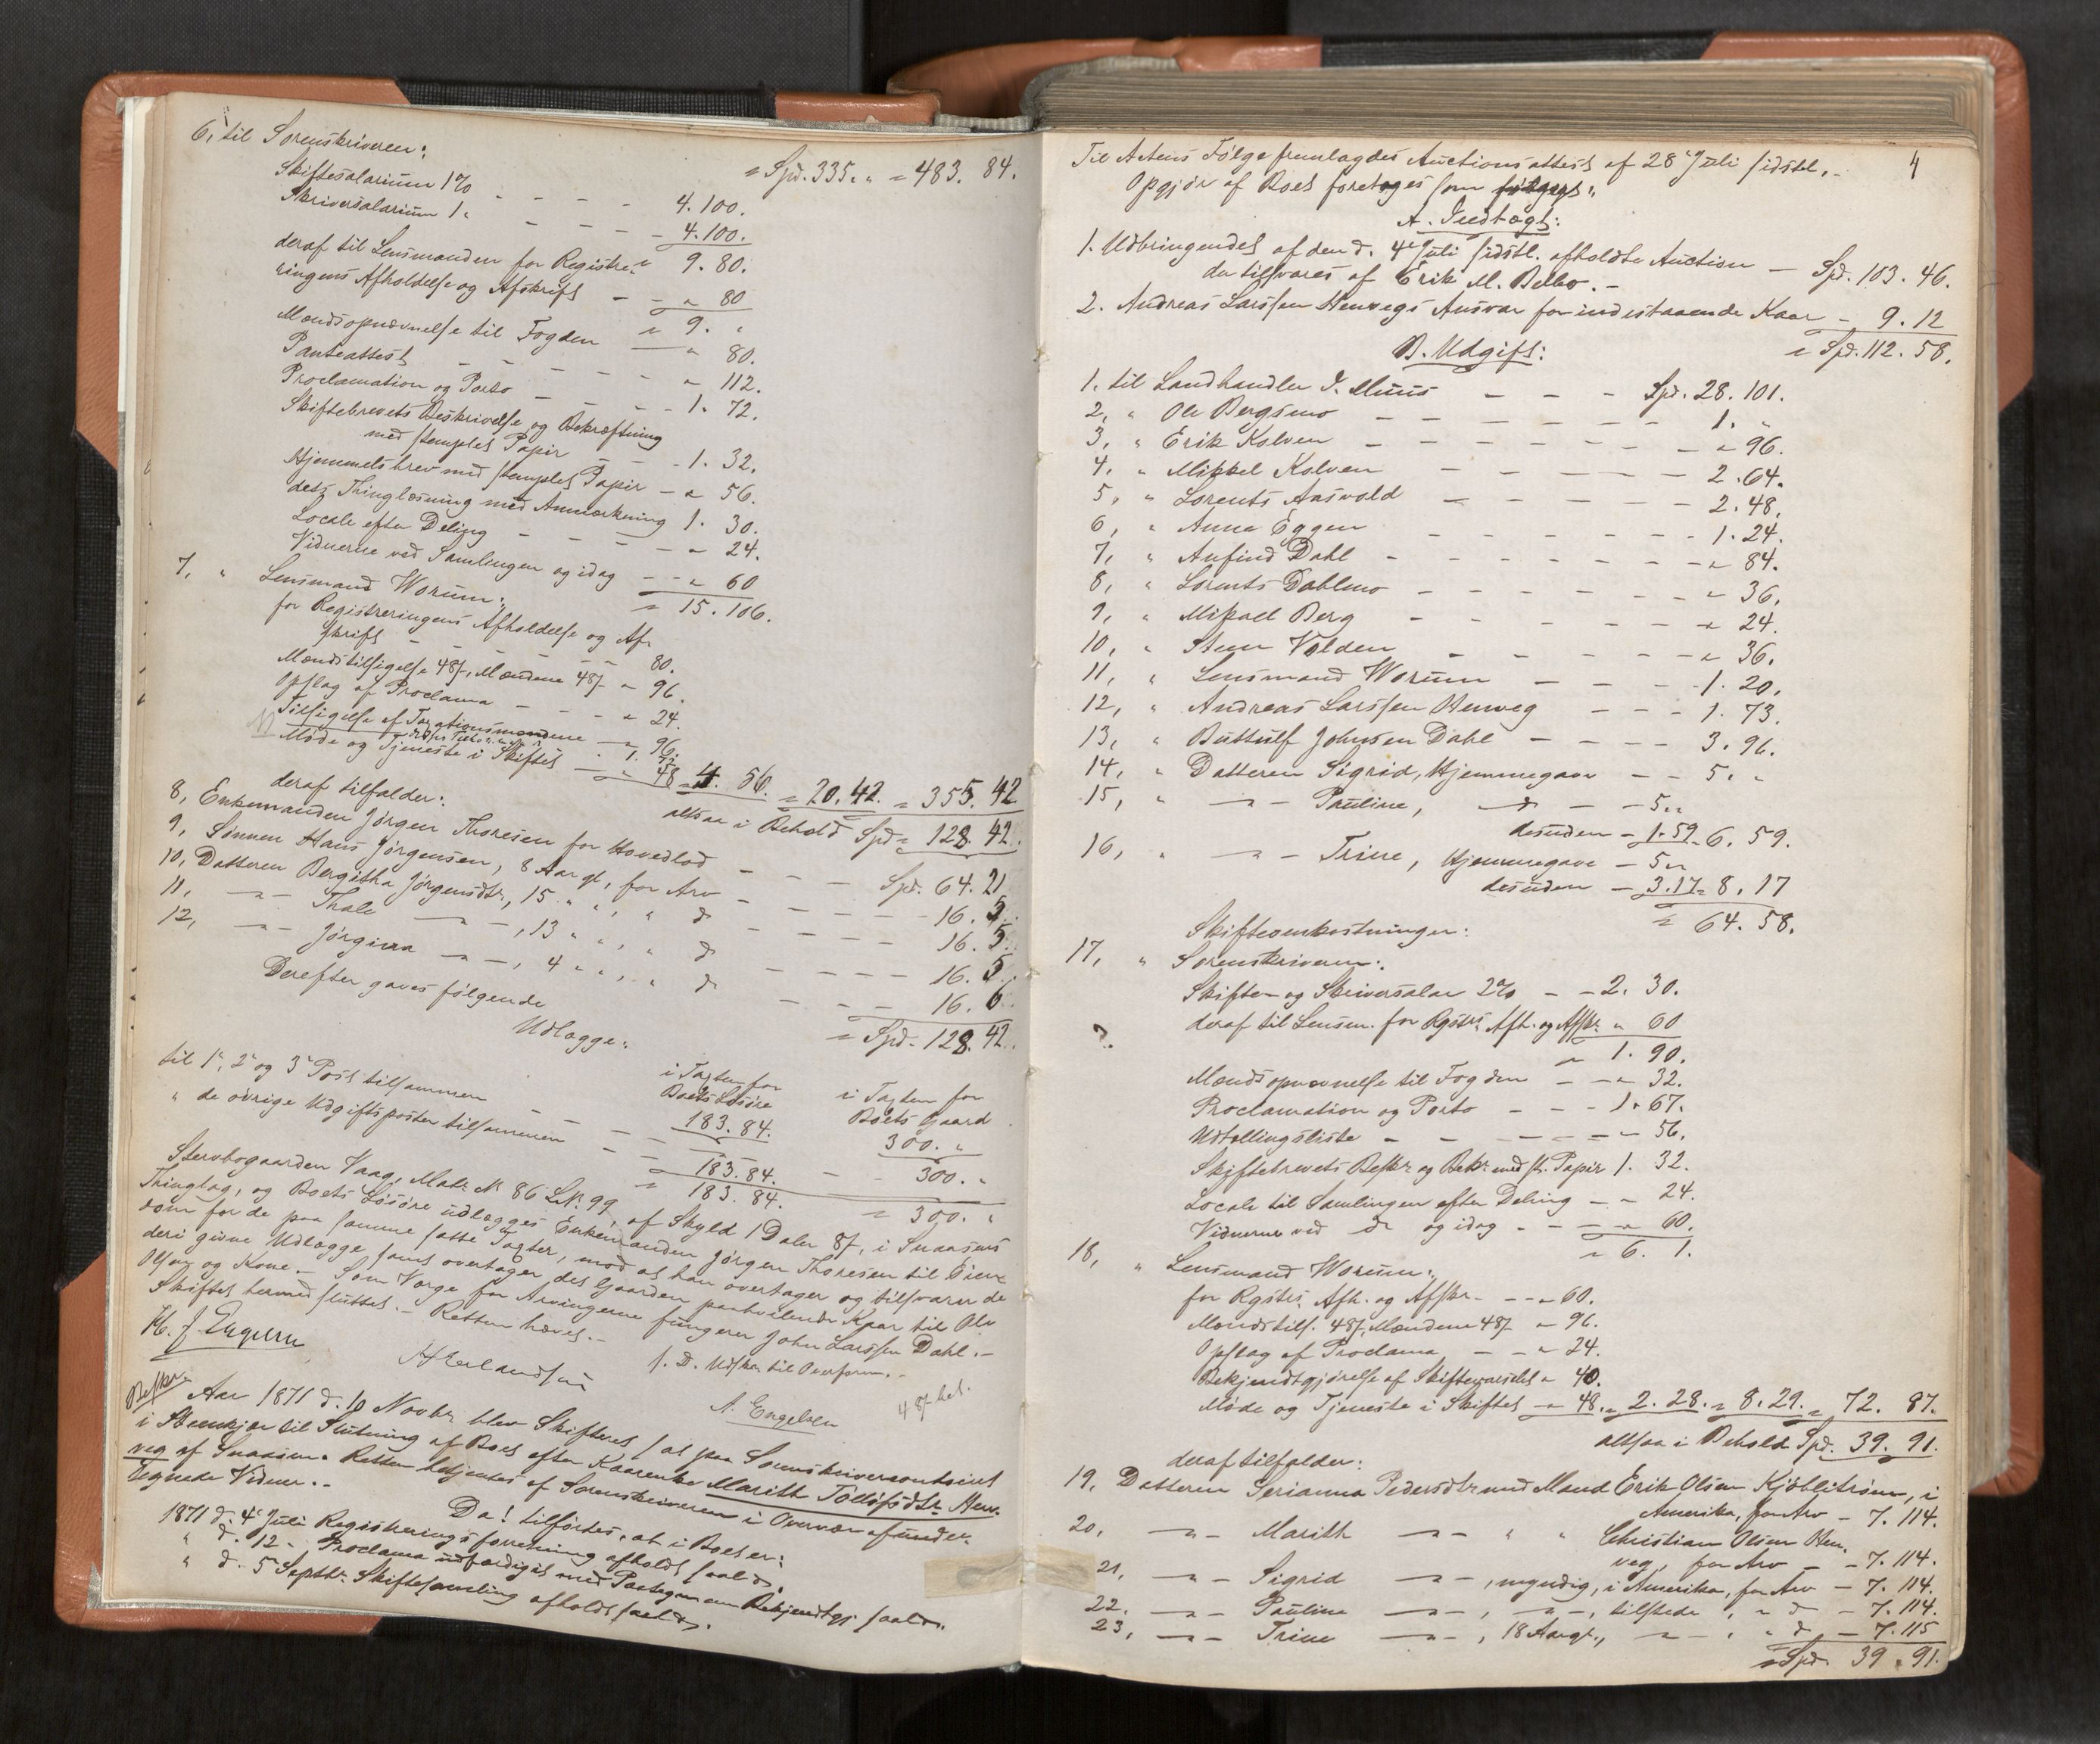 6, til Sorenskriveren:
= Spd. 335. " = 483. 84.
Skiftesalarium 1% - - - - 4. 100.
Skriversalarium 1 " - - - - 4. 100.
" 9. 80.
deraf til Lensmanden for Registre-
ringens Afholdelse og Afskrift - - " 80
" 9. "
Mændsopnævnelse til Fogden — " 80.
Panteattest - - - - - " 112.
Proclamation og Porto - - - - 1. 72.
Skiftebrevets Beskrivelse og Bekræftning
med stemplet Papir - - - 1. 32.
Hjemmelsbrev med stemplet Papir - " 56.
dets Thinglæsning med Anmærkning 1. 30.
Locale efter Deling - - - - " 24.
Vidnerne ved Samlingen og idag - - " 60
" 15. 106.
7, " Lensmand Worum:
for Registreringens Afholdelse og Af-
skrift - - - - - 80.
Mændstilsigelse 48 f, Mændene 48 f " 96.
Opslag af Proclama - - - " 24.
Tilsigelse af Taxationsmændene - " 96.
Møde og Tjeneste i Skiftet — " 48 = 4. 56. = 20. 42. = 355. 42
altsaa i Behold Spd. 128. 42.
deraf tilfalder:
8, Enkemanden Jørgen Thoresen for Hovedlod - - - Spd. 64. 21
9, Sønnen Hans Jørgensen, 8 Aar gl., for Arv - - - - 16. 5.
10, Datteren Bergitha Jørgensdtr, 15 " ", " do - - - - 16. 5.
11, —"— Thale —"—, 13 " ", " do - - - - 16. 5.
12, —"— Jørgina —"—, 4 " ", " do - - - 16. 6.
= Spd. 128. 42.
Derefter gaves følgende
Udlægge:
i Taxten for Boets Løsøre
i Taxten for Boets Gaard
til 1', 2' og 3' Post tilsammen - - - 183. 84. 300. "
" de øvrige Udgiftsposter tilsammen - - 183. 84. - 300. "
= 183. 84. = 300. "
Stervbogaarden Vaag, Matr. No. 86 LNo. 99 af Skyld 1 Daler 8 f, i Snaasens
Thinglag, og Boets Løsøre udlægges Enkemanden Jørgen Thoresen til Eien-
dom for de paa samme satte Taxter, mod at han overtager og tilsvarer de
deri givne Udlægge samt overtager det Gaarden paahvilende Kaar til Ole
Olsen og Kone. - Som Værge for Arvingerne fungerer John Larssen Dahl. -
Skiftet hermed sluttet. - Retten hævet. -
H. J. Engelsen
A Erlandsen
S. D. Udskr. til Overform. -
A. Engelsen
48 f bet.
Beskr.
Aar 1871 d. 10 Novbr. blev Skifteret sat paa Sorenskrivercontoiret
i Stenkjær til Slutning af Boet efter Kaarenke Marith Tollefsdtr. Hen-
veg af Snaasen. Retten betjentes af Sorenskriveren i Overvær af under-
tegnede Vidner. -
Da! tilførtes, at i Boet er:
1871 d. 4' Juli Registreringsforretning afholdt saalds.
" d. 12 - Proclama udfærdiget med Paategn. om Bekjendtgj. saalds.
" d. 5 Septbr. Skiftesamling afholdt saalds.
4
Til Actens Følge fremlagdes Auctionsattest af 28' Juli sidstl. -
Opgjør af Boet foretoges som følger:
A. Indtægt:
1. Udbringendet af den d. 4' Juli sidstl. afholdte Auction — Spd. 103. 46.
der tilsvares af Erik M. Belbo. -
2. Andreas Larssen Henvegs Ansvar for indestaaende Kaar - 9. 12
= Spd. 112. 58.
B. Udgift:
1, til Landhandler I. Muus - - - Spd. 28. 101.
2, " Ole Bergsmo - - - - - - 1. "
3, " Erik Kolven - - - - - - " 96.
4, " Mikkel Kolven - - - - - 2. 64.
5, " Lorents Aasvold - - - - - 2. 48.
6, " Anne Eggen - - - - - - 1. 24.
7, " Anfind Dahl - - - - - - " 84.
8, " Lorents Dahlmo - - - - - " 36.
9, " Mikael Berg - - - - - " 24.
10, " Sten Volden - - - - - " 36.
11, " Lensmand Worum - - - - 1. 20.
12, " Andreas Larssen Henveg - - - 1. 73.
13, " Buttulf Johnsen Dahl - - - - 3. 96.
14, " Datteren Sigrid, Hjemmegave - - 5. "
15, " —"— Pauline, do - - 5. "
desuden - 1. 59 - 6. 59.
16, " —"— Trine, Hjemmegave - 5. "
desuden - 3. 17 = 8. 17
= 64. 58.
Skifteomkostninger:
17, " Sorenskriveren:
Skifte- og Skriversalar 2% - - 2. 30.
deraf til Lensm. for Rgstrs. Afh. og Afskr. " 60
?
" 1. 90.
Mændsopnævnelse til Fogden - - " 32.
Proclamation og Porto - - - 1. 67.
Udtællingsliste - - - - - " 56.
Skiftebrevets Beskr. og Bekr. med st. Papir 1. 32.
Locale til Samlingen efter Deling - - " 24.
Vidnerne ved do og idag - - - " 60.
= 6. 1.
18, " Lensmand Worum:
for Rgstrs. Afh. og Afskr. - - " 60.
Mændstils. 48 f, Mændene 48 f - " 96.
Opslag af Proclama - - " 24.
Bekjendtgjørelse af Skiftevarslet " 40.
Møde og Tjeneste i Skiftet - " 48. = 2. 28. = 8. 29. = 72. 87.
altsaa i Behold Spd. 39. 91.
deraf tilfalder:
19, Datteren Serianna Pedersdtr. med Mand Erik Olsen Kjøblitrøm, i
Amerika, for Arv - 7. 114.
20, —"— Marith —"— " " Christian Olsen Hen-
veg, for Arv - - 7. 114.
21, —"— Sigrid —"—, myndig, i Amerika, for Arv - 7. 114.
22, —"— Pauline —"—, —"—, tilstede, " do - 7. 114.
23, —"— Trine —"—, 18 Aar gl., —"—, " do - 7. 115
= Spd. 39. 91.